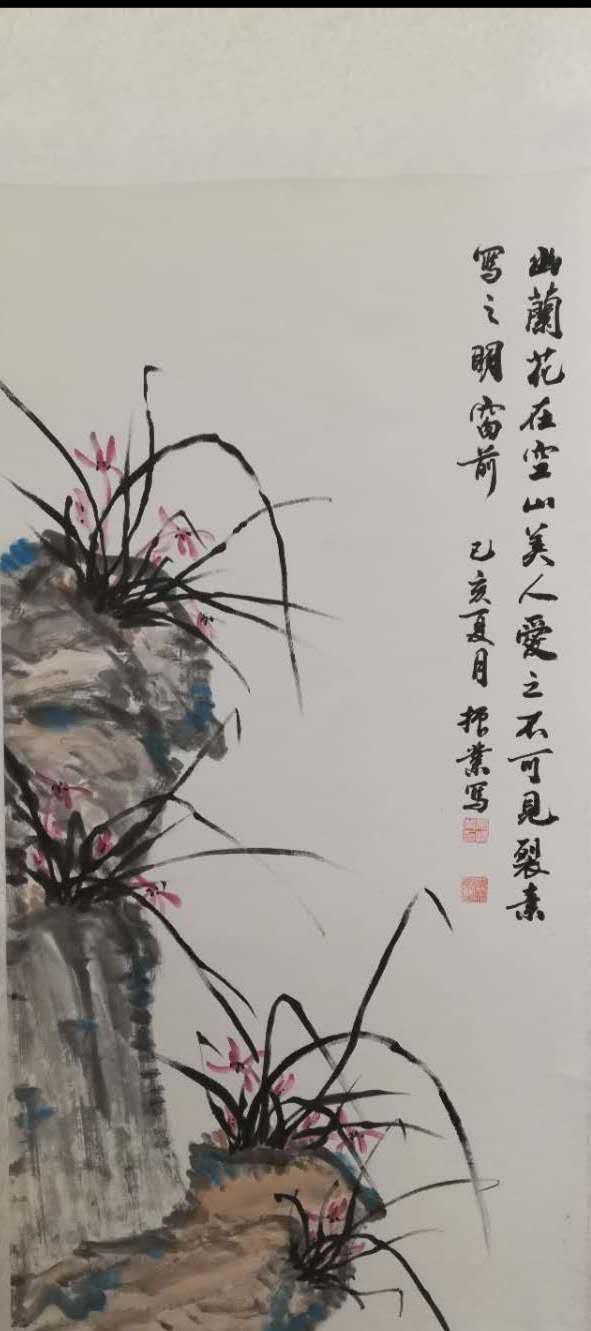 幽蘭花在空山美人愛之不可見裂素
寫之明窗前 己亥夏月 振業写